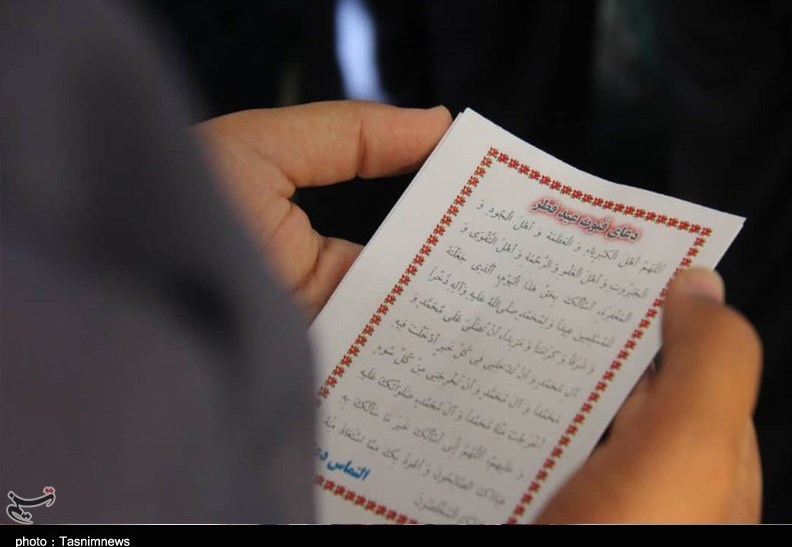 دعای قنوت عید فطر
اللهم اهل الکبریاء و العظمة و اهل الجود و
الجبروت و اهل العفو و الرحمة و اهل التقوی و
المغفرة اسئلک بحق هذا الیوم الذی جعلته
للمسلمین عیدا و لمحمد صلی الله علیه وآله ذخرا
و شرفا و کرامتا و مزیدا، ان تصلی علی محمد و
آل محمد و ان تدخلنی فی کل خیر ادخلت فیه
محمدا و آل محمد و ان تخرجنی من کل سوء
اخرجت منه محمدا و آل محمد، صلواتک علیه
و علیهم، اللهم إنی اسئلک خیر ما سألک به
عبادک الصالحون و اعوذ بک مما استعاذ منه
عبادک المخلصون
التماس دعا
تسنیم
photo : Tasnimnews